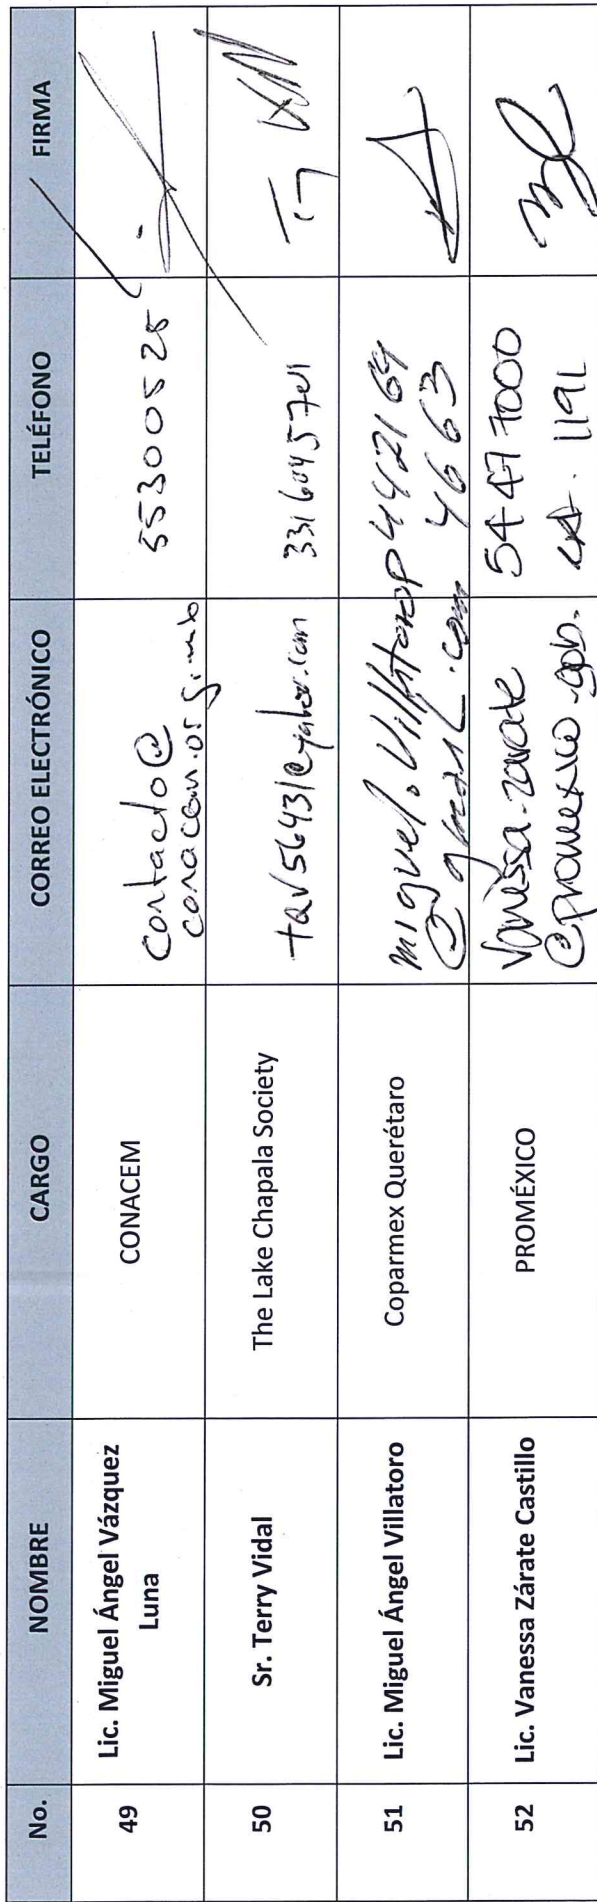 No. NOMBRE CARGO CORREO ELECTRÓNICO TELÉFONO FIRMA
49 Lic. Miguel Ángel Vázquez
Luna
CONACEM
contacto@
conacem.org
553000525
50 Sr. Terry Vidal The Lake Chapala Society
51 Lic. Miguel Ángel Villatoro Coparmex Querétaro
miguel.villatoro
@gmail.com
442169
4663
52 Lic. Vanessa Zárate Castillo PROMÉXICO
vanessa.zarate
@promexico.gob.
54477000
ext. 1191